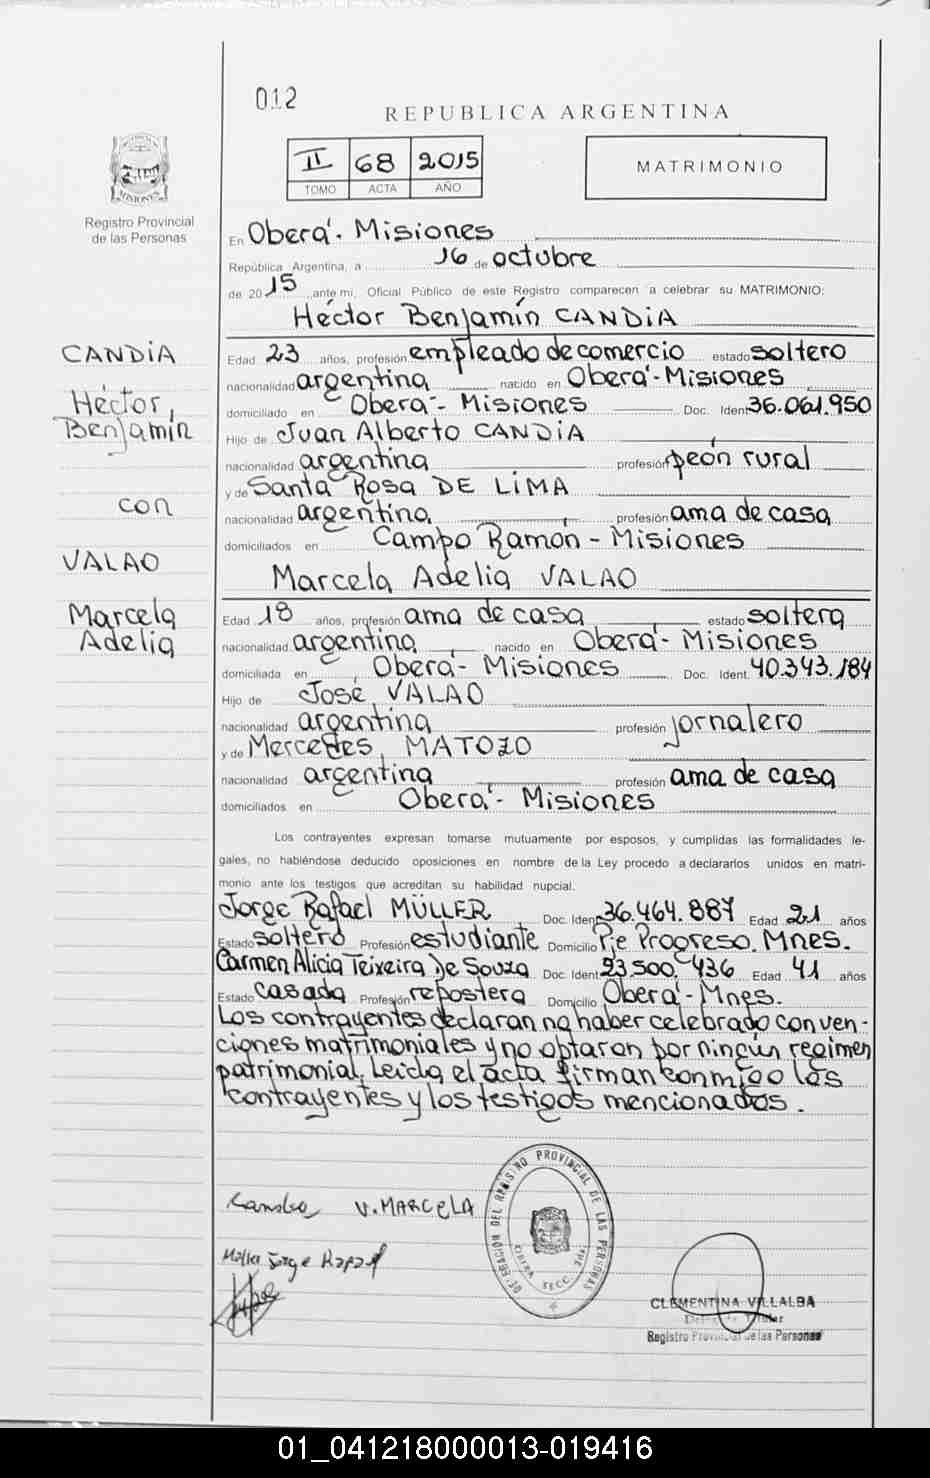 012
REPUBLICA ARGENTINA
II 68 2015
TOMO ACTA AÑO
MATRIMONIO
MISIONES
Registro Provincial
de las Personas
En Oberá - Misiones
República Argentina, a 16 de octubre
de 2015 ante mi, Oficial Público de este Registro comparecen a celebrar su MATRIMONIO:
Héctor Benjamín CANDIA
CANDIA
Héctor,
Benjamín
con
VALAO
Marcela
Adelia
Edad 23 años, profesión empleado de comercio estado soltero
nacionalidad argentina nacido en Oberá - Misiones
domiciliado en Oberá - Misiones Doc. Ident 36.061.950
Hijo de Juan Alberto CANDIA
nacionalidad argentina profesión peón rural
y de Santa Rosa DE LIMA
nacionalidad argentina profesión ama de casa
domiciliados en Campo Ramón - Misiones
Marcela Adelia VALAO
Edad 18 años, profesión ama de casa estado soltera
nacionalidad argentina nacido en Oberá - Misiones
domiciliada en Oberá - Misiones Doc. Ident. 40.343.184
Hijo de José VALAO
nacionalidad argentina profesión jornalero
y de Mercedes MATOZO
nacionalidad argentina profesión ama de casa
domiciliados en Oberá - Misiones
Los contrayentes expresan tomarse mutuamente por esposos, y cumplidas las formalidades le-
gales, no habiéndose deducido oposiciones en nombre de la Ley procedo a declararlos unidos en matri-
monio ante los testigos que acreditan su habilidad nupcial.
Jorge Rafael MÜLLER Doc. Ident 36.464.887 Edad 21 años
Estado soltero Profesión estudiante Domicilio Pje Progreso. Mnes.
Carmen Alicia Teixeira De Souza Doc. Ident. 23.500.436 Edad 41 años
Estado casada Profesión repostera Domicilio Oberá - Mnes.
Los contrayentes declaran no haber celebrado conven-
ciones matrimoniales y no optaron por ningún regimen
patrimonial. Leída el acta firman conmigo los
contrayentes y los testigos mencionados.
V. MARCELA
Jorge Rafael
DELEGACION DEL REGISTRO PROVINCIAL DE LAS PERSONAS
SECC.
CLEMENTINA VILLALBA
Registro Provincial de las Personas
01_041218000013-019416